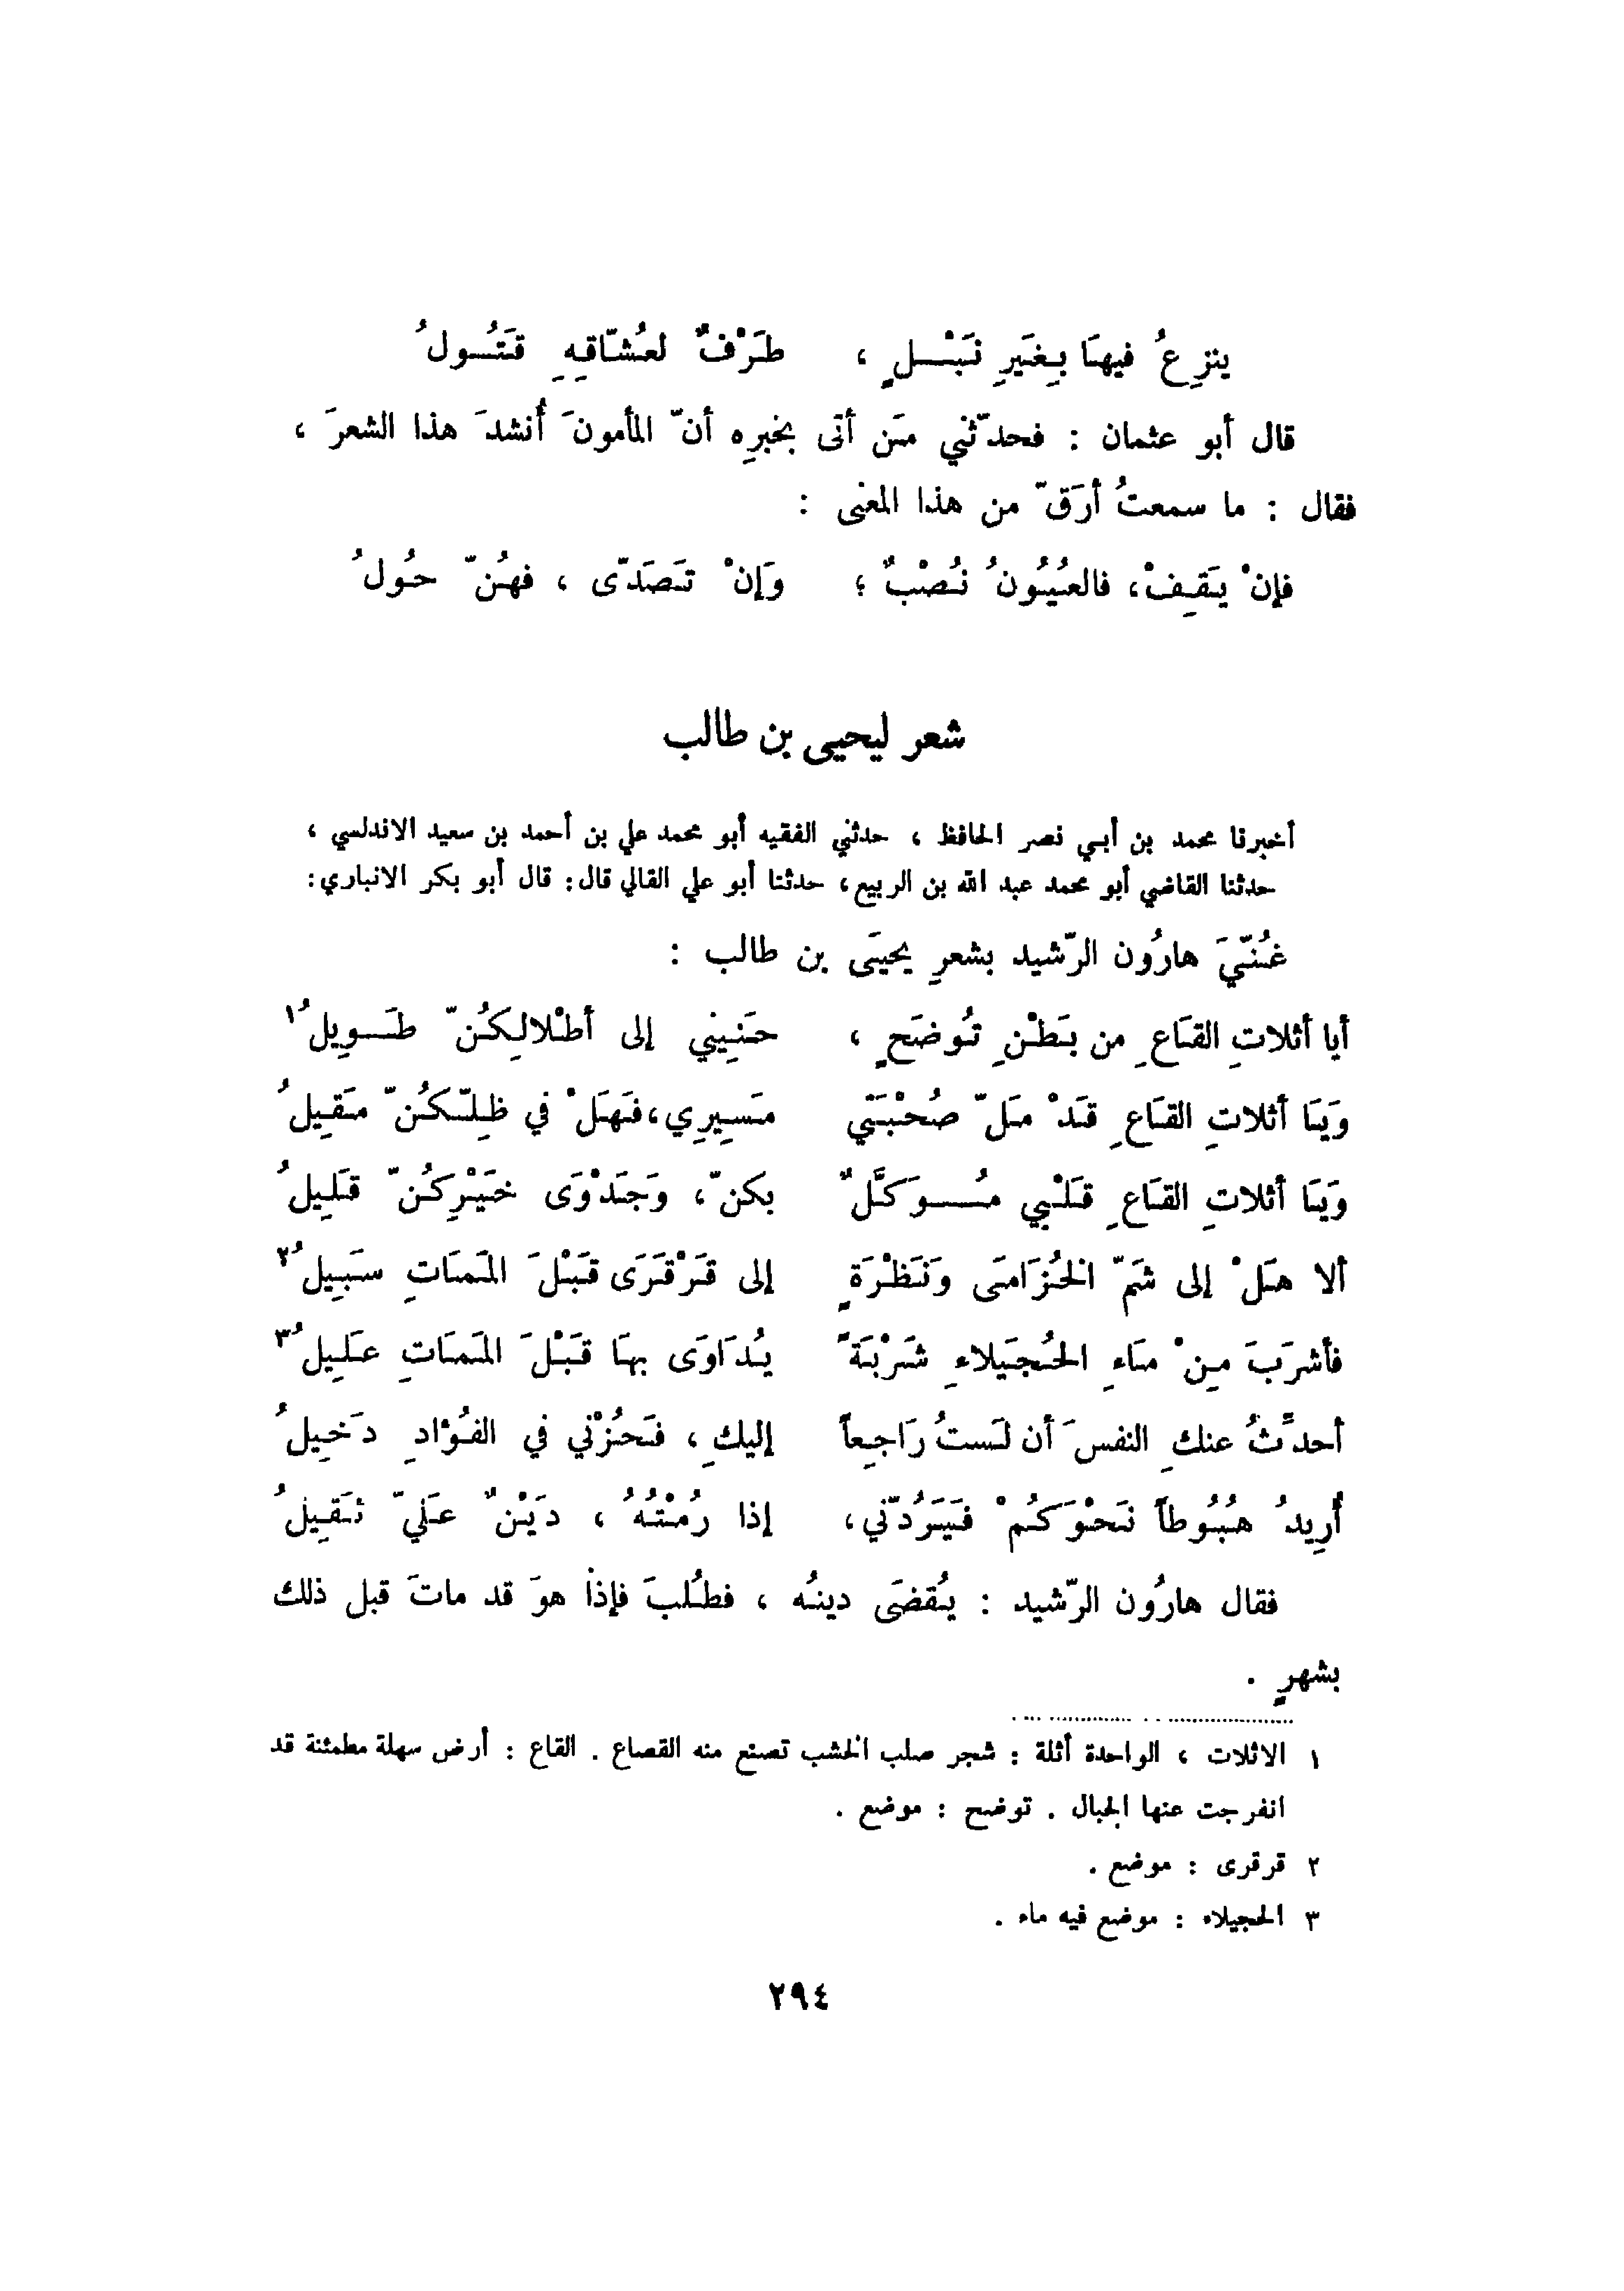 ينزِعُ فيهَا بِغَيرِ نَبْلٍ ، طَرْفٌ لعُشّاقِهِ قَتُولُ
قال أبو عثمان : فحدّثني مَن أتى بخبرِه أنّ المأمونَ أُنشدَ هذا الشعرَ ،
فقال : ما سمعتُ أرَقّ من هذا المعنى :
فإنْ يَقِفْ، فالعُيُونُ نُصْبٌ ؛ وَإنْ تَصَدّى ، فهُنّ حُولُ
شعر ليحيى بن طالب
أخبرنا محمد بن أبي نصر الحافظ ، حدثني الفقيه أبو محمد علي بن أحمد بن سعيد الاندلسي ،
حدثنا القاضي أبو محمد عبد الله بن الربيع، حدثنا أبو علي القالي قال: قال أبو بكر الانباري:
غُنّيَ هارُون الرّشيد بشعرِ يحيَى بن طالب :
أيا أثلاتِ القَاعِ من بَطْنِ تُوضَحٍ ، حَنِيني إلى أطْلالِكُنّ طَوِيلُ١
وَيَا أثلاتِ القَاعِ قَدْ مَلّ صُحْبَتي مَسِيرِي،فَهَلْ في ظِلّكُنّ مَقِيلُ
وَيَا أثلاتِ القَاعِ قَلْبي مُوَكَّلٌ بكنّ، وَجَدْوَى خَيْرِكُنّ قَلِيلُ
ألا هَلْ إلى شَمّ الخُزَامَى وَنَظْرَةٍ إلى قَرْقَرَى قَبْلَ المَمَاتِ سَبِيلُ٢
فأشرَبَ مِنْ مَاءِ الحُجَيلاءِ شَرْبَةً يُدَاوَى بهَا قَبْلَ المَمَاتِ عَلِيلُ٣
أحدِّثُ عنكِ النفسَ أن لَستُ رَاجِعاً إليكِ ، فَحُزْني في الفُؤادِ دَخِيلُ
أُرِيدُ هُبُوطاً نَحْوَكُمْ فَيَرُدّني، إذا رُمْتُهُ ، دَيْنٌ عَليّ ثَقِيلُ
فقال هارُون الرّشيد : يُقضَى دينُه ، فطُلبَ فإذا هوَ قد ماتَ قبل ذلك
بشهرٍ .
١ الاثلات ، الواحدة أثلة : شجر صلب الخشب تصنع منه القصاع . القاع : أرض سهلة مطمئنة قد
انفرجت عنها الجبال . توضح : موضع .
٢ قرقرى : موضع .
٣ الحجيلاء : موضع فيه ماء .
٢٩٤